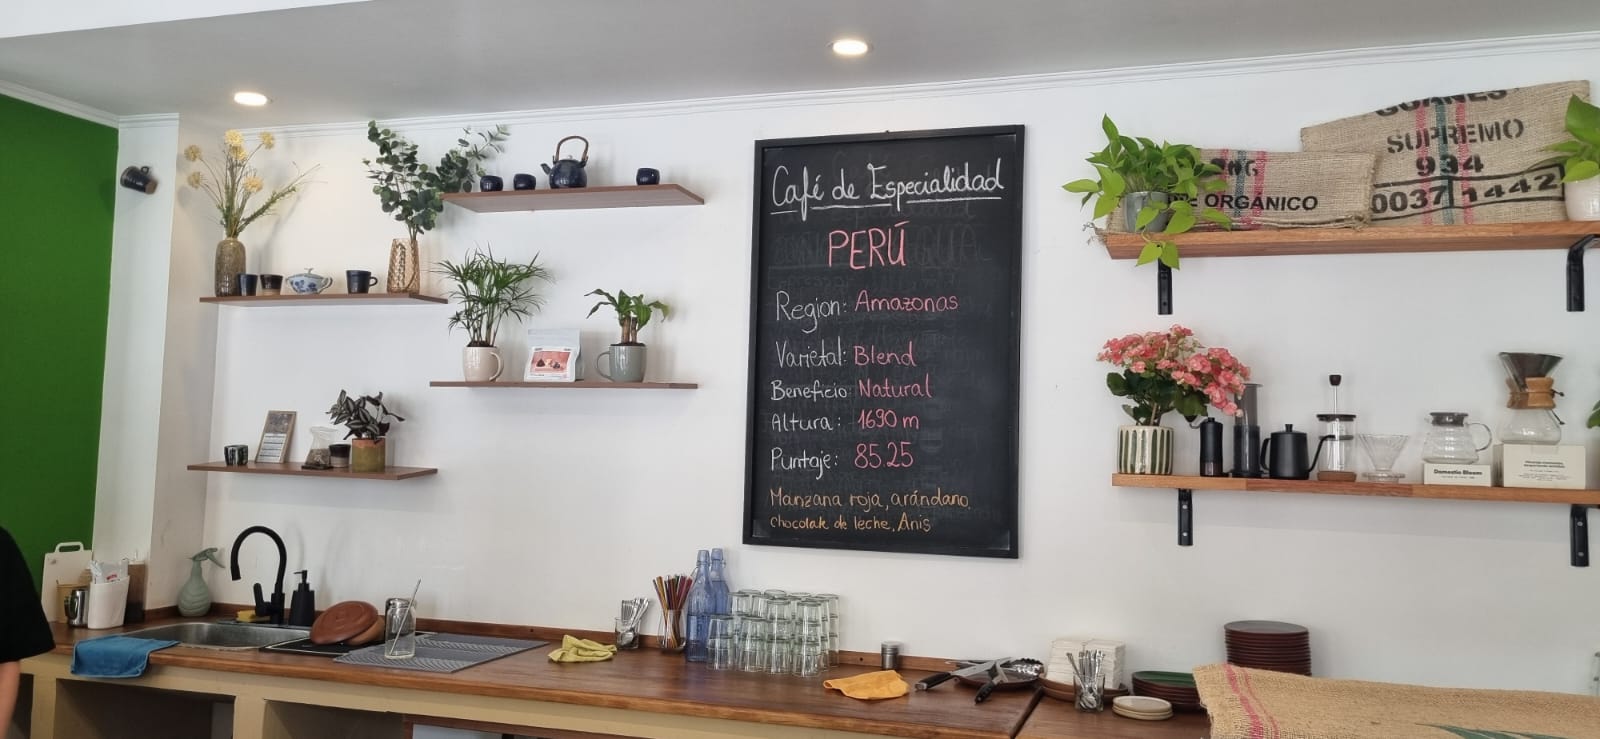 Café de Especialidad
PERÚ
Region: Amazonas
Varietal: Blend
Beneficio Natural
Altura: 1690 m
Puntaje: 85.25
Manzana roja, arándano
chocolate de leche, Anis
ORGÁNICO
SUPREMO
934
0037 1442
Domestic Bloom